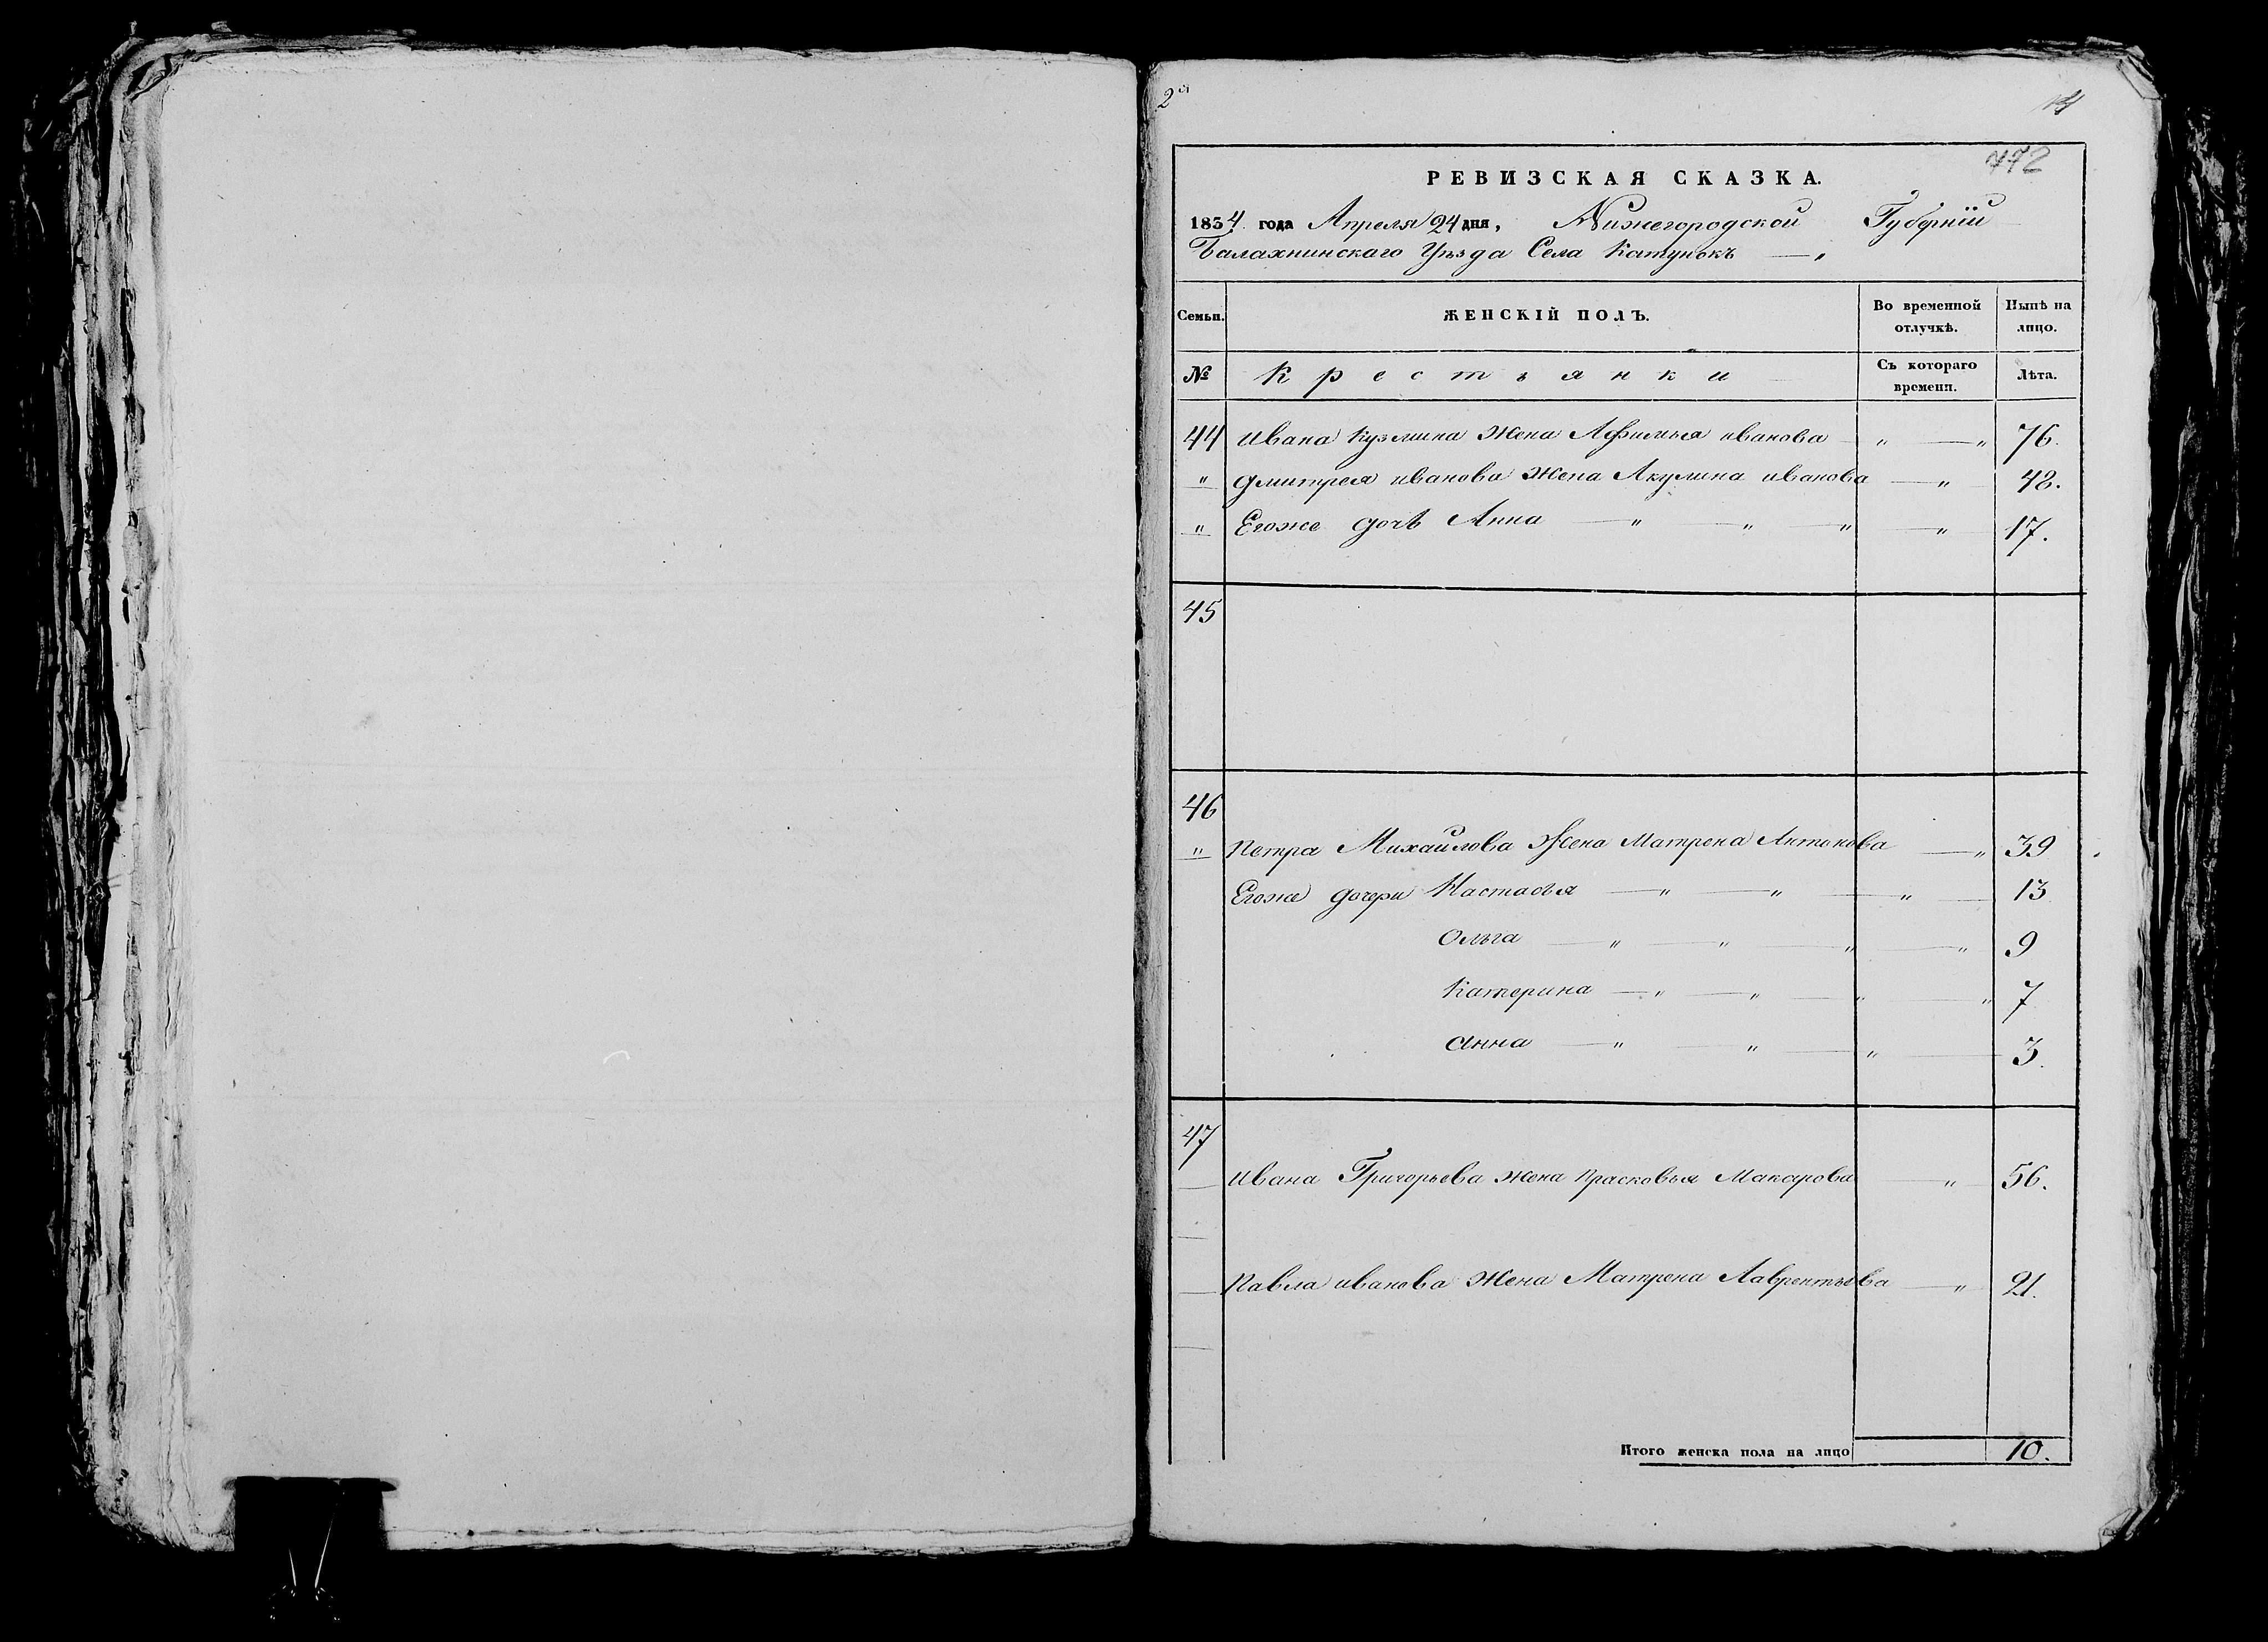 2я
14
472
РЕВИЗСКАЯ СКАЗКА.
1834 года Апреля 24 дня, Нижегородской Губерніи
Балахнинскаго Уѣзда Села Катунокъ
Семьи. ЖЕНСКІЙ ПОЛЪ. Во временной отлучкѣ. Нынѣ на лицо.
№ Крестьянки Съ котораго времени. Лѣта.
44 Ивана Кузмина Жена Афимья иванова — „ — „ 76.
„ Дмитрея иванова Жена Акулина иванова — „ 48.
„ Егоже дочь Анна — „ „ „ — „ 17.
45
46
„ Петра Михайлова Жена Матрена Антонова — „ 39
Егоже дочери Настасья — „ — „ — „ 13
Ольга — „ — „ — „ — „ 9
Катерина — „ — „ — „ „ 7
Анна — „ — „ — „ 3.
47
Ивана Григорьева Жена Прасковья Макарова — „ 56.
Павла иванова Жена Матрена Лаврентьева — „ 21.
Итого женска пола на лицо 10.